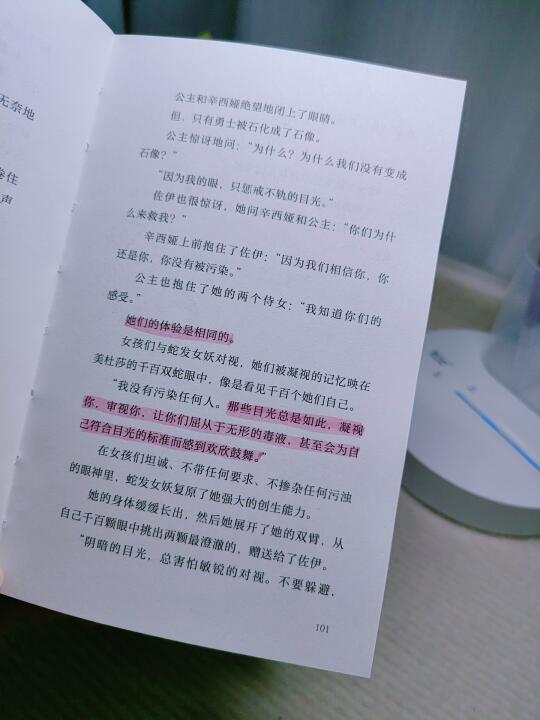 无奈地
卷住
声
公主和辛西娅绝望地闭上了眼睛。
但，只有勇士被石化成了石像。
公主惊讶地问：“为什么？为什么我们没有变成
石像？”
“因为我的眼，只惩戒不轨的目光。”
佐伊也很惊讶，她问辛西娅和公主：“你们为什
么来救我？”
辛西娅上前抱住了佐伊：“因为我们相信你，你
还是你，你没有被污染。”
公主也抱住了她的两个侍女：“我知道你们的
感受。”
她们的体验是相同的。
女孩们与蛇发女妖对视，她们被凝视的记忆映在
美杜莎的千百双蛇眼中，像是看见千百个她们自己。
“我没有污染任何人。那些目光总是如此，凝视
你，审视你，让你们屈从于无形的毒液，甚至会为自
己符合目光的标准而感到欢欣鼓舞。”
在女孩们坦诚、不带任何要求、不掺杂任何污浊
的眼神里，蛇发女妖复原了她强大的创生能力。
她的身体缓缓长出，然后她展开了她的双臂，从
自己千百颗眼中挑出两颗最澄澈的，赠送给了佐伊。
“阴暗的目光，总害怕敏锐的对视。不要躲避，
101